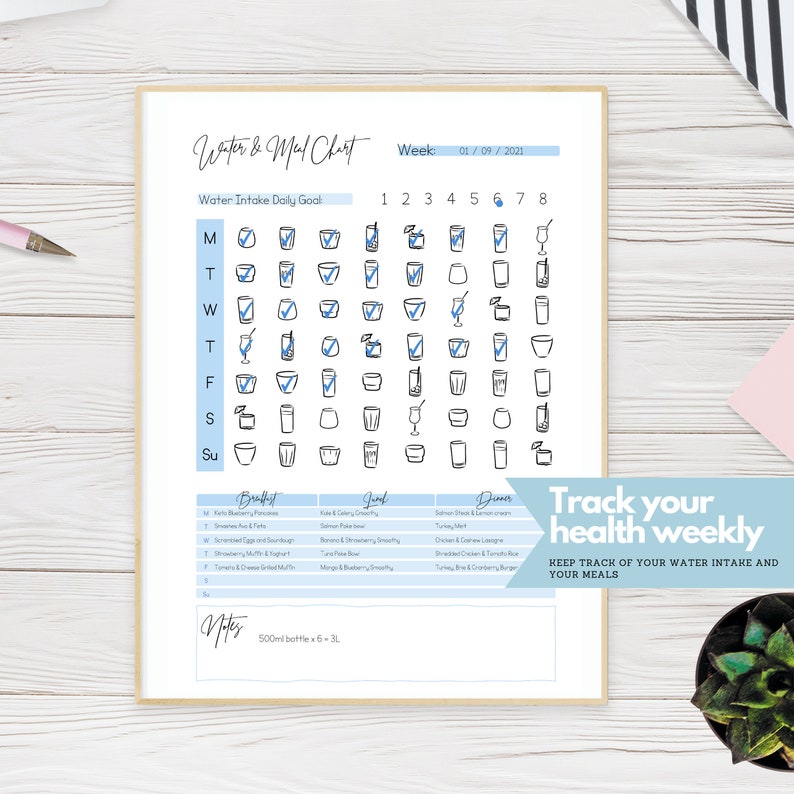 Water & Meal Chart
Week: 01 / 09 / 2021
Water Intake Daily Goal: 1 2 3 4 5 6 7 8
M
T
W
T
F
S
Su
Breakfast Lunch Dinner
M Keto Blueberry Pancakes Kale & Celery Smoothy Salmon Steak & Lemon cream
T Smashes Avo & Feta Salmon Poke bowl Turkey Melt
W Scrambled Eggs and Sourdough Banana & Strawberry Smoothy Chicken & Cashew Lasagne
T Strawberry Muffin & Yoghurt Tuna Poke Bowl Shredded Chicken & Tomato Rice
F Tomato & Cheese Grilled Muffin Mango & Blueberry Smoothy Turkey, Brie & Cranberry Burger
S
Su
Track your
health weekly
KEEP TRACK OF YOUR WATER INTAKE AND
YOUR MEALS
Notes
500ml bottle x 6 = 3L